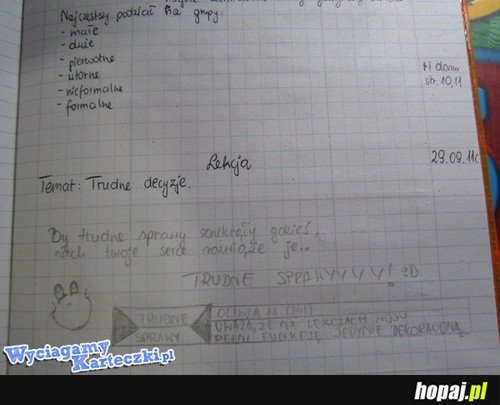 Najczęstszy podział na grupy:
- małe
- duże
- pierwotne
- wtórne
- nieformalne
- formalne
W domu
str. 10, 11
Lekcja
29.09.11r
Temat: Trudne decyzje.
By trudne sprawy zniknęły gdzieś,
niech twoje serce rozwiąże je...
TRUDNE SPRAWYYYY! ;D
TRUDNE
SPRAWY
OLIWIA N. (14)
UWAŻA, ŻE NA LEKCJACH WOSU
PEŁNI FUNKCJĘ JEDYNIE DEKORACYJNĄ
Wyciagamy
Karteczki.pl
hopaj.pl